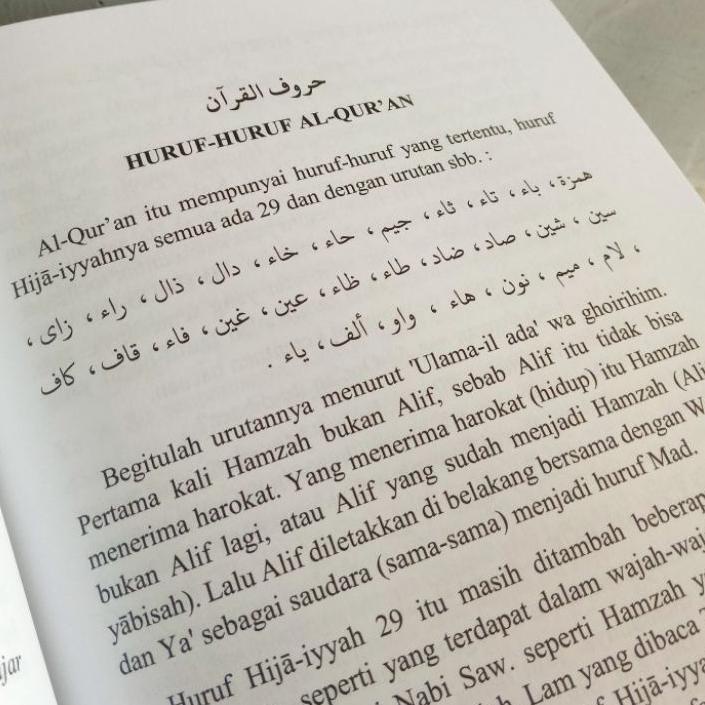 حروف القرآن
HURUF-HURUF AL-QUR'AN
Al-Qur'an itu mempunyai huruf-huruf yang tertentu, huruf
Hijā-iyyahnya semua ada 29 dan dengan urutan sbb. :
همزة، باء، تاء، ثاء، جيم، حاء، خاء، دال، ذال، راء، زاى،
سين، شين، صاد، ضاد، طاء، ظاء، عين، غين، فاء، قاف، كاف
، لام، ميم، نون، هاء، واو، ألف، ياء.
Begitulah urutannya menurut 'Ulama-il ada' wa ghoirihim.
Pertama kali Hamzah bukan Alif, sebab Alif itu tidak bisa
menerima harokat. Yang menerima harokat (hidup) itu Hamzah
bukan Alif lagi, atau Alif yang sudah menjadi Hamzah (Ali
yābisah). Lalu Alif diletakkan di belakang bersama dengan W
dan Ya' sebagai saudara (sama-sama) menjadi huruf Mad.
Huruf Hijā-iyyah 29 itu masih ditambah beberap
seperti yang terdapat dalam wajah-waj
Nabi Saw. seperti Hamzah y
Lam yang dibaca
Hijā-iyya
jar